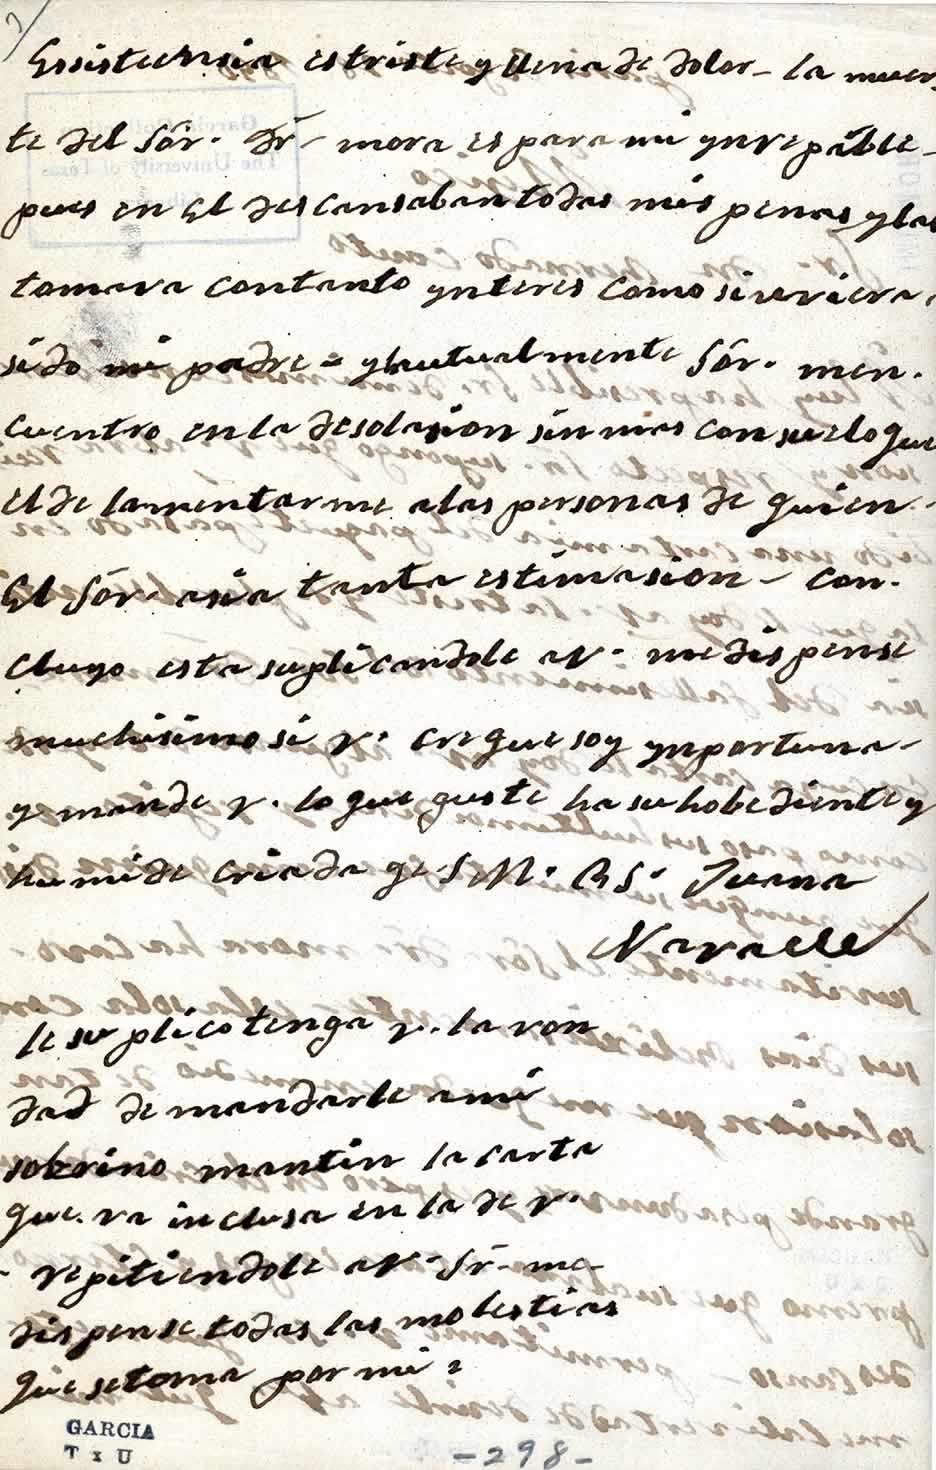 Essistencia es triste y llena de dolor - la muer
te del Sór. Dr mora es para mi ynrepáble -
pues en El descansaban todas mis penas y las
tomara con tanto ynteres como si uviera
sido mi padre = Sór. men.
cuentro en la desolasion sin mas consuelo que
el de lamentarme a las personas de quien
El Sór. asia tanta estimasion - con.
cluyo esta suplicandole a V. me dispense
muchisimo si V. cre que soy ynportuna -
y mande V. lo que guste ha su hobediente y
humide criada q S. M. B S. Juana
Navalle
le suplico tenga V. la von
dad de mandarle a mi
sobrino mantin la carta
que va inclusa en la de V.
- repitiendole a V. Sr. me
dispense todas las molestias
que se toma por mi =
GARCIA
T x U
- 298 -